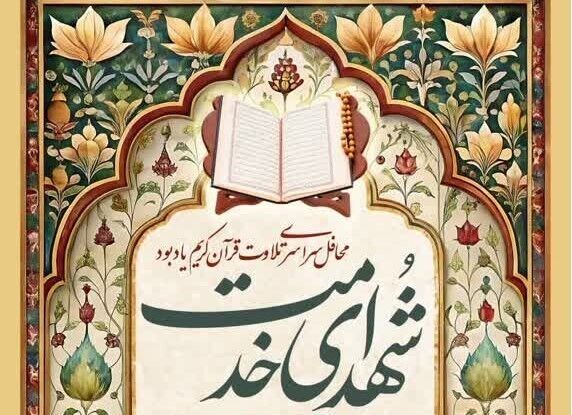 محافل سراسری تلاوت قرآن کریم یادبود
شهدای خدمت